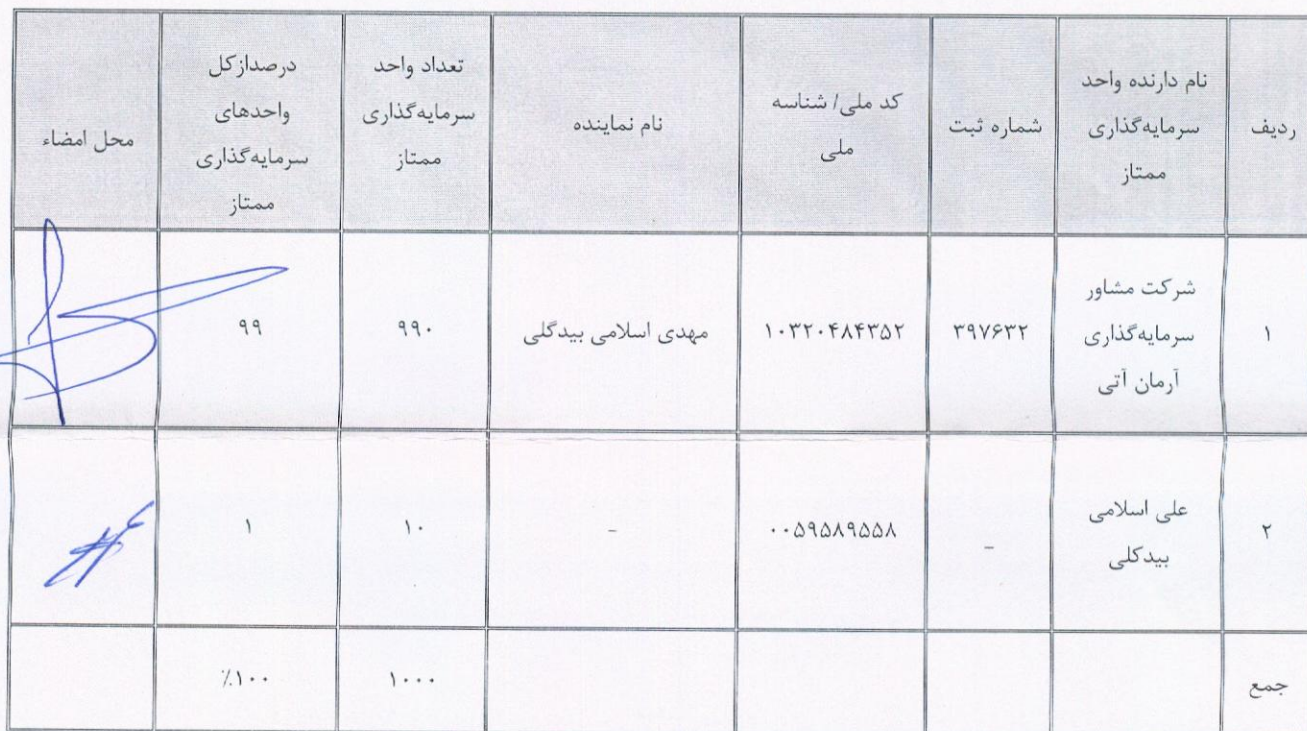 ردیف
نام دارنده واحد
سرمایه‌گذاری
ممتاز
شماره ثبت
کد ملی/ شناسه
ملی
نام نماینده
تعداد واحد
سرمایه‌گذاری
ممتاز
درصدازکل
واحدهای
سرمایه‌گذاری
ممتاز
محل امضاء
۱
شرکت مشاور
سرمایه‌گذاری
آرمان آتی
۳۹۷۶۳۲
۱۰۳۲۰۴۸۴۳۵۲
مهدی اسلامی بیدگلی
۹۹۰
۹۹
۲
علی اسلامی
بیدکلی
-
۰۰۵۹۵۸۹۵۵۸
-
۱۰
۱
جمع
۱۰۰۰
٪۱۰۰